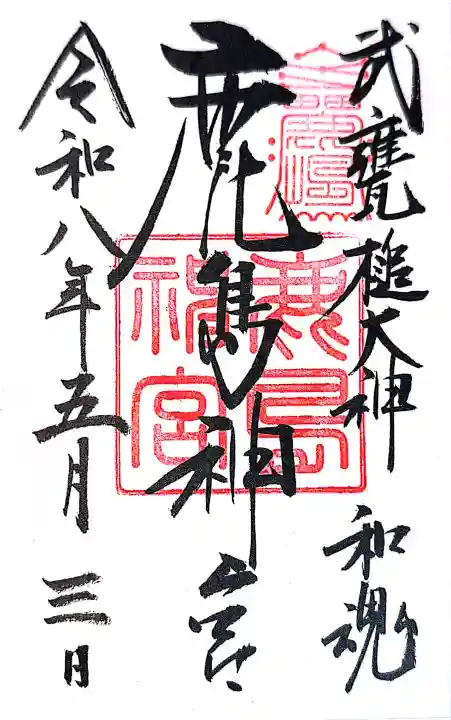 武甕槌大神 和魂
鹿島神宮
令和八年五月三日
鹿島
神宮